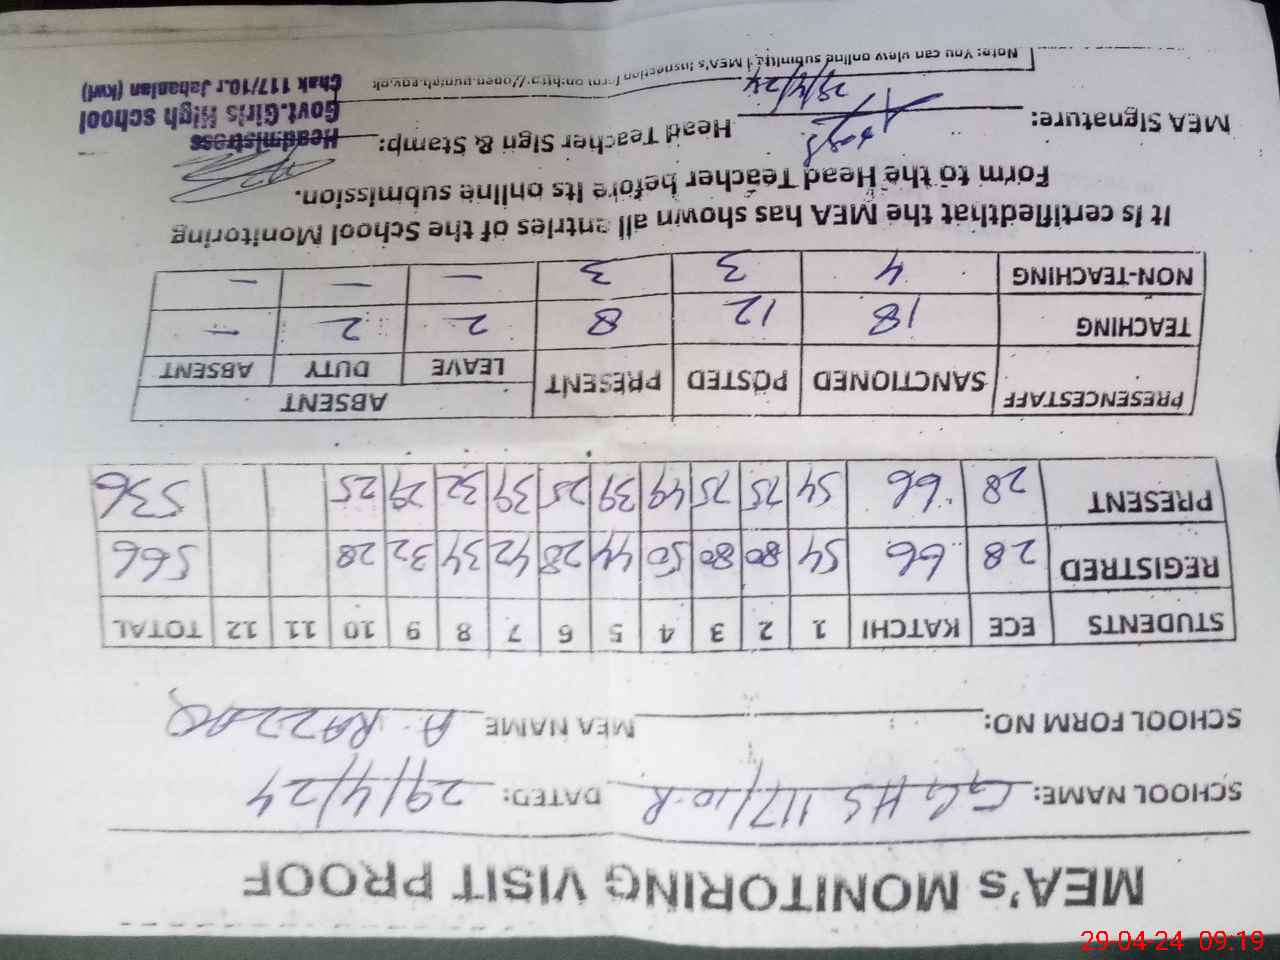 MEA's MONITORING VISIT PROOF
SCHOOL NAME: GGHS 117/10-R DATED: 29/4/24
SCHOOL FORM NO: MEA NAME A. RAZZAQ
STUDENTS ECE KATCHI 1 2 3 4 5 6 7 8 9 10 11 12 TOTAL
REGISTRED 28 66 54 80 80 50 44 28 42 34 32 28 566
PRESENT 28 66 54 75 75 49 39 25 39 32 29 25 536
ABSENT
PRESENCESTAFF SANCTIONED POSTED PRESENT LEAVE DUTY ABSENT
TEACHING 18 12 8 2 2 -
NON-TEACHING 4 3 3 - - -
It is certifiedthat the MEA has shown all entries of the School Monitoring
Form to the Head Teacher before its online submission.
MEA Signature: Head Teacher Sign & Stamp:
29/4/24
Headmistress
Govt.Girls High school
Chak 117/10.r Jahanian (kwl)
Note: You can view online submitted MEA's Inspection form on http://open.punjab.gov.pk
29-04-24 09:19